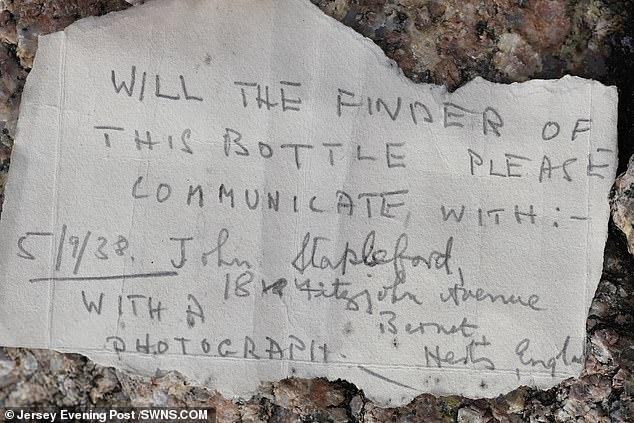 WILL THE FINDER OF
THIS BOTTLE PLEASE
COMMUNICATE WITH:-
5/9/38. John Stapleford,
18 Fitzjohn Avenue
WITH A Barnet
PHOTOGRAPH. Herts, England
© Jersey Evening Post /SWNS.COM